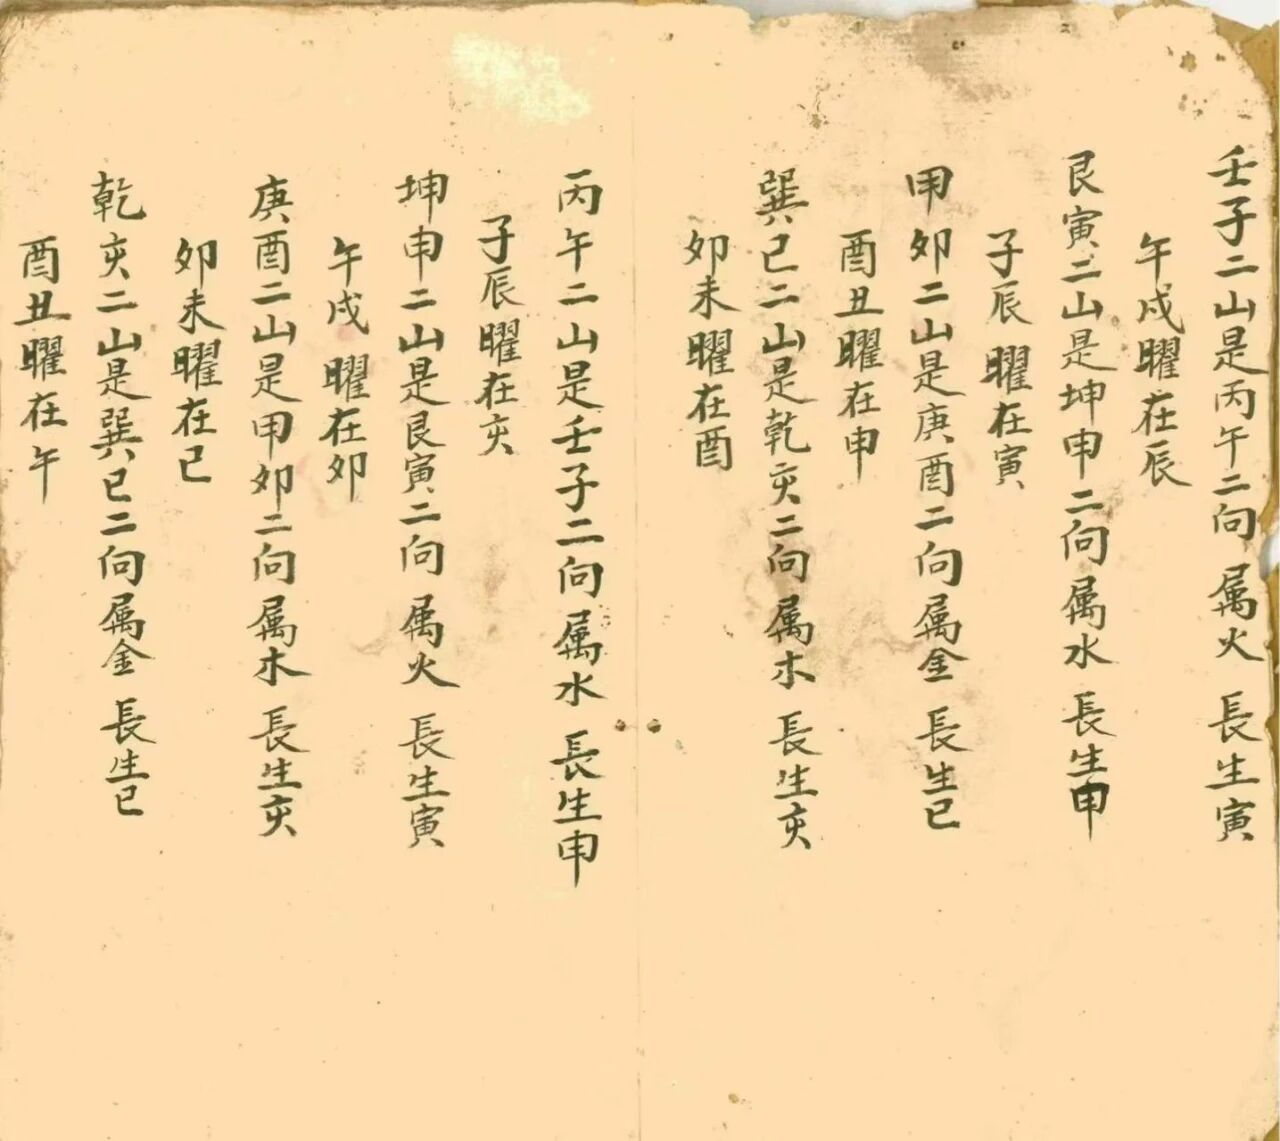 壬子二山是丙午二向属火長生寅
午戍曜在辰
艮寅二山是坤申二向属水長生申
子辰曜在寅
甲卯二山是庚酉二向属金長生巳
酉丑曜在申
巽巳二山是乾亥二向属木長生亥
卯未曜在酉
丙午二山是壬子二向属水長生申
子辰曜在亥
坤申二山是艮寅二向属火長生寅
午戍曜在卯
庚酉二山是甲卯二向属木長生亥
卯未曜在巳
乾亥二山是巽巳二向属金長生巳
酉丑曜在午